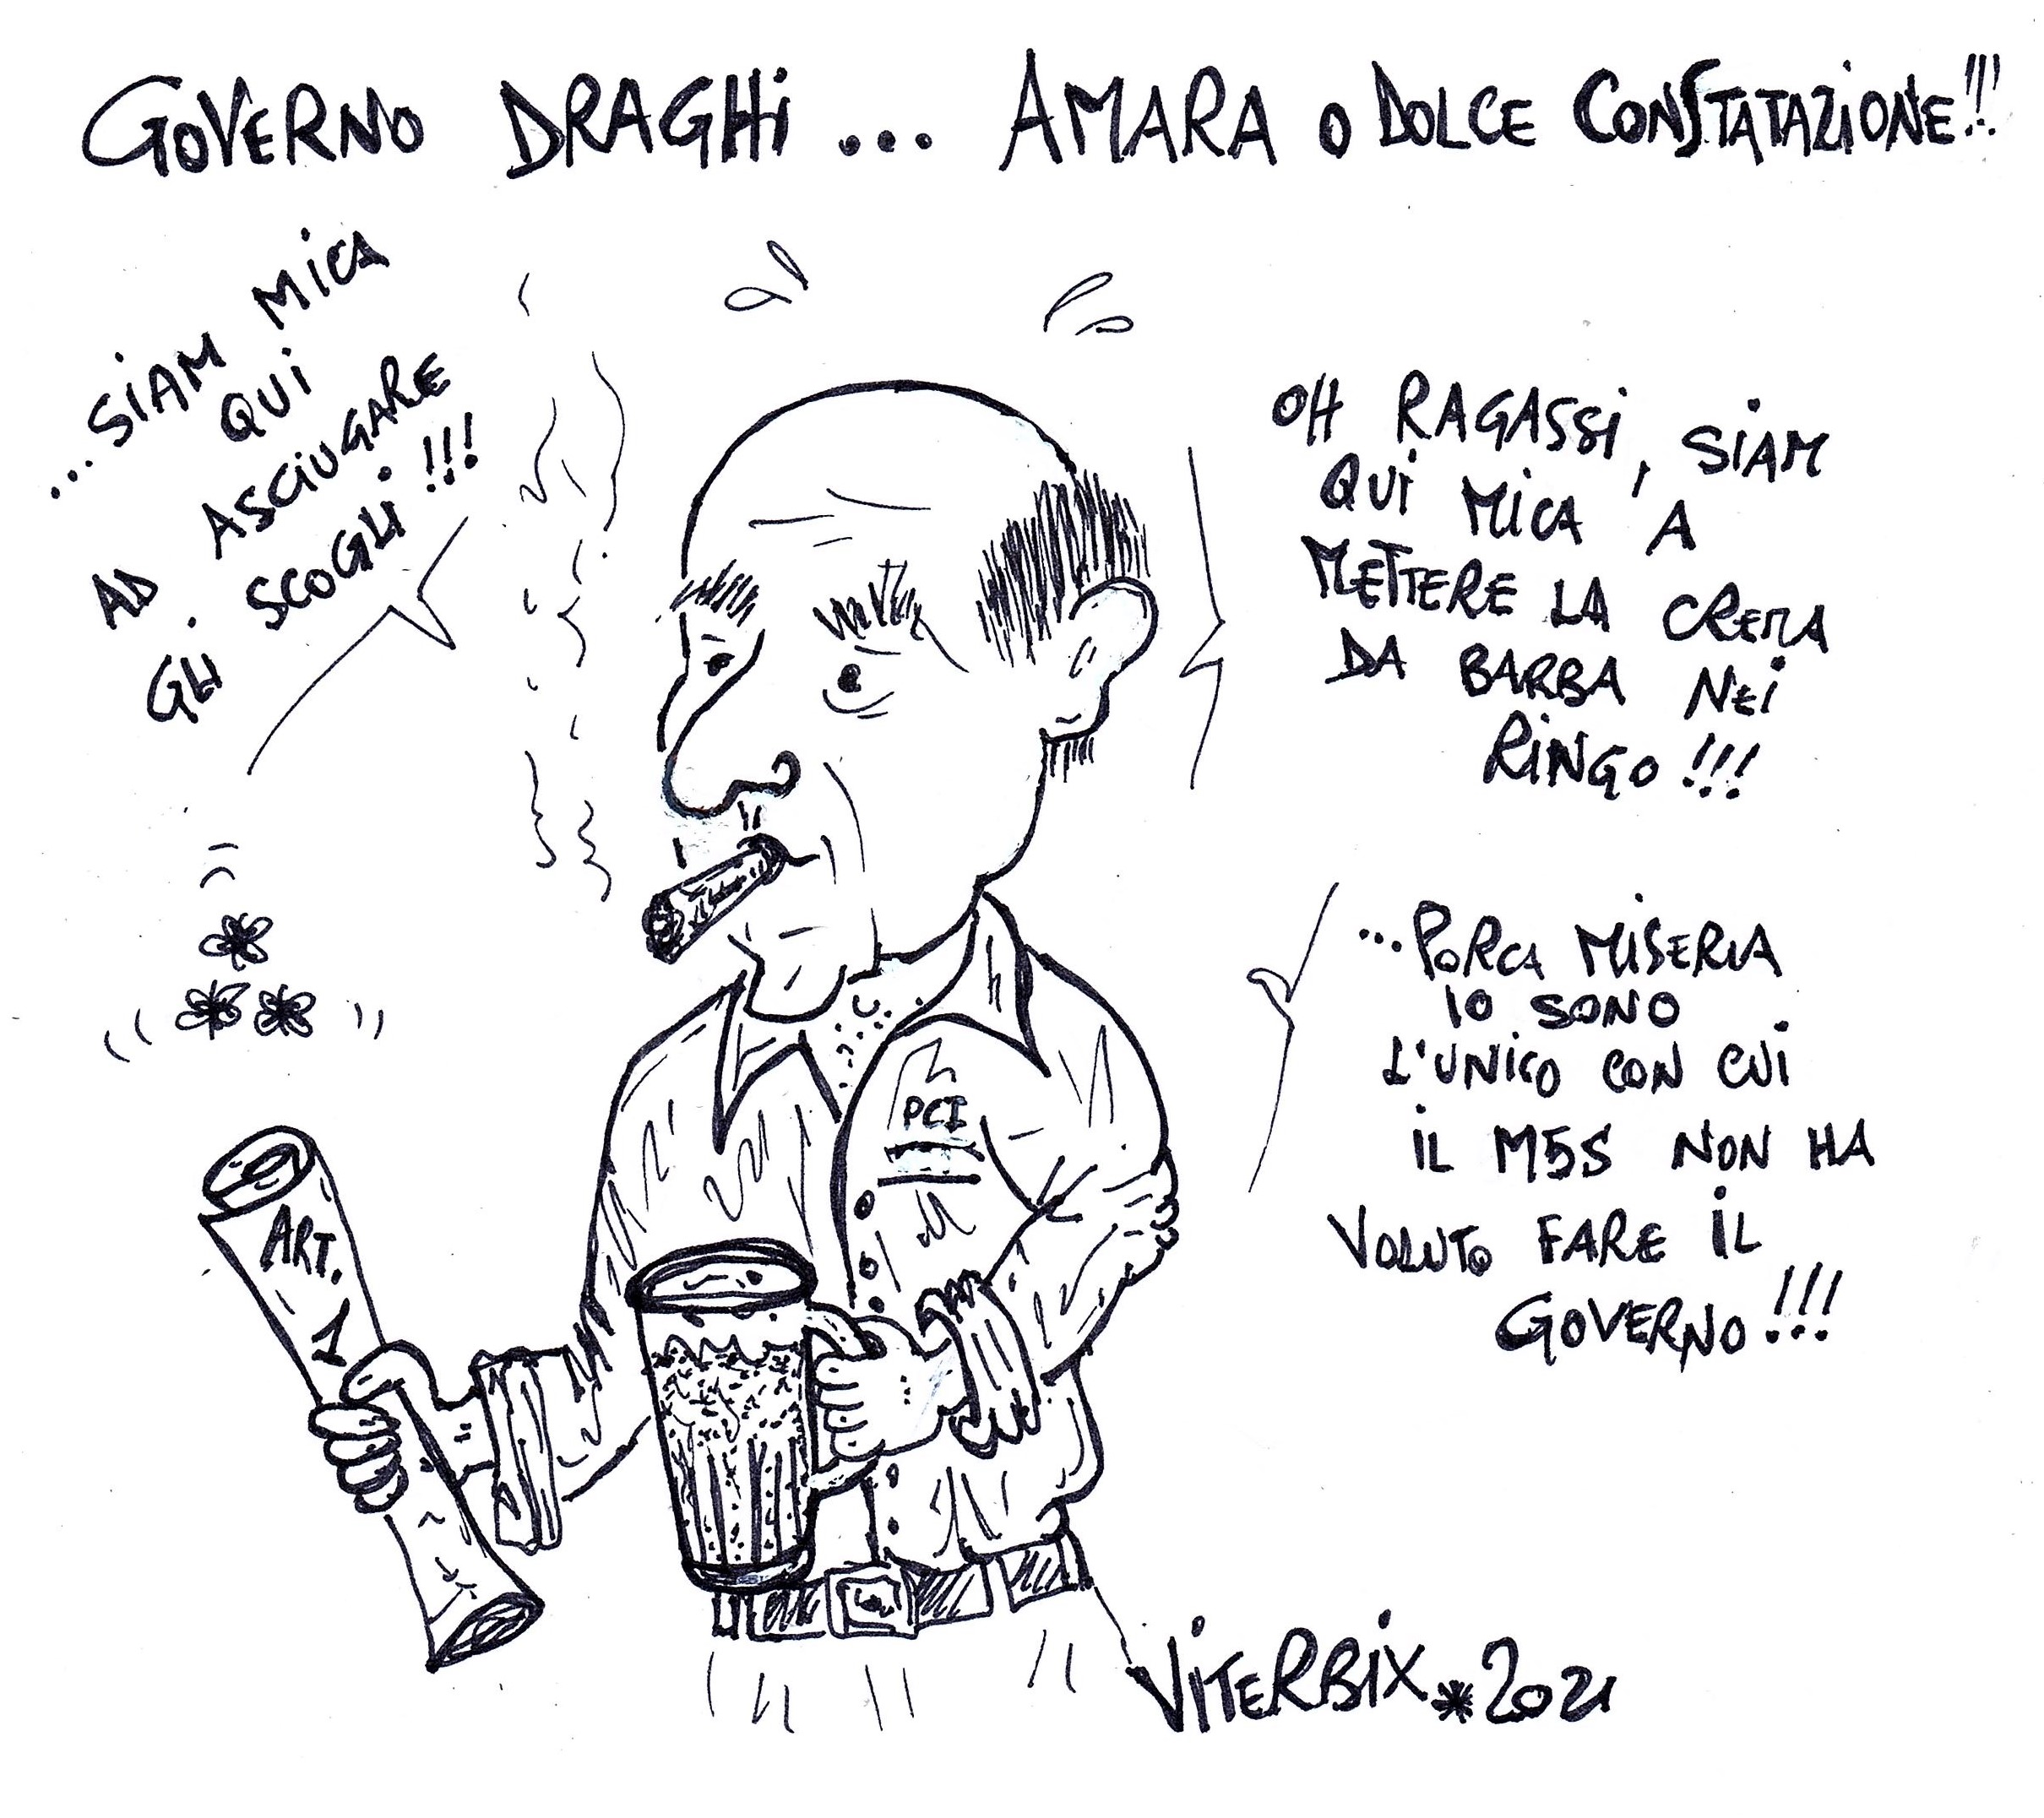 GOVERNO DRAGHI... AMARA O DOLCE CONSTATAZIONE!!!
...SIAM MICA
QUI
AD ASCIUGARE
GLI SCOGLI!!!
OH RAGASSI, SIAM
QUI MICA A
METTERE LA CREMA
DA BARBA NEI
RINGO!!!
...PORCA MISERIA
IO SONO
L'UNICO CON CUI
IL M5S NON HA
VOLUTO FARE IL
GOVERNO!!!
PCI
ART.
1
VITERBIX*2021